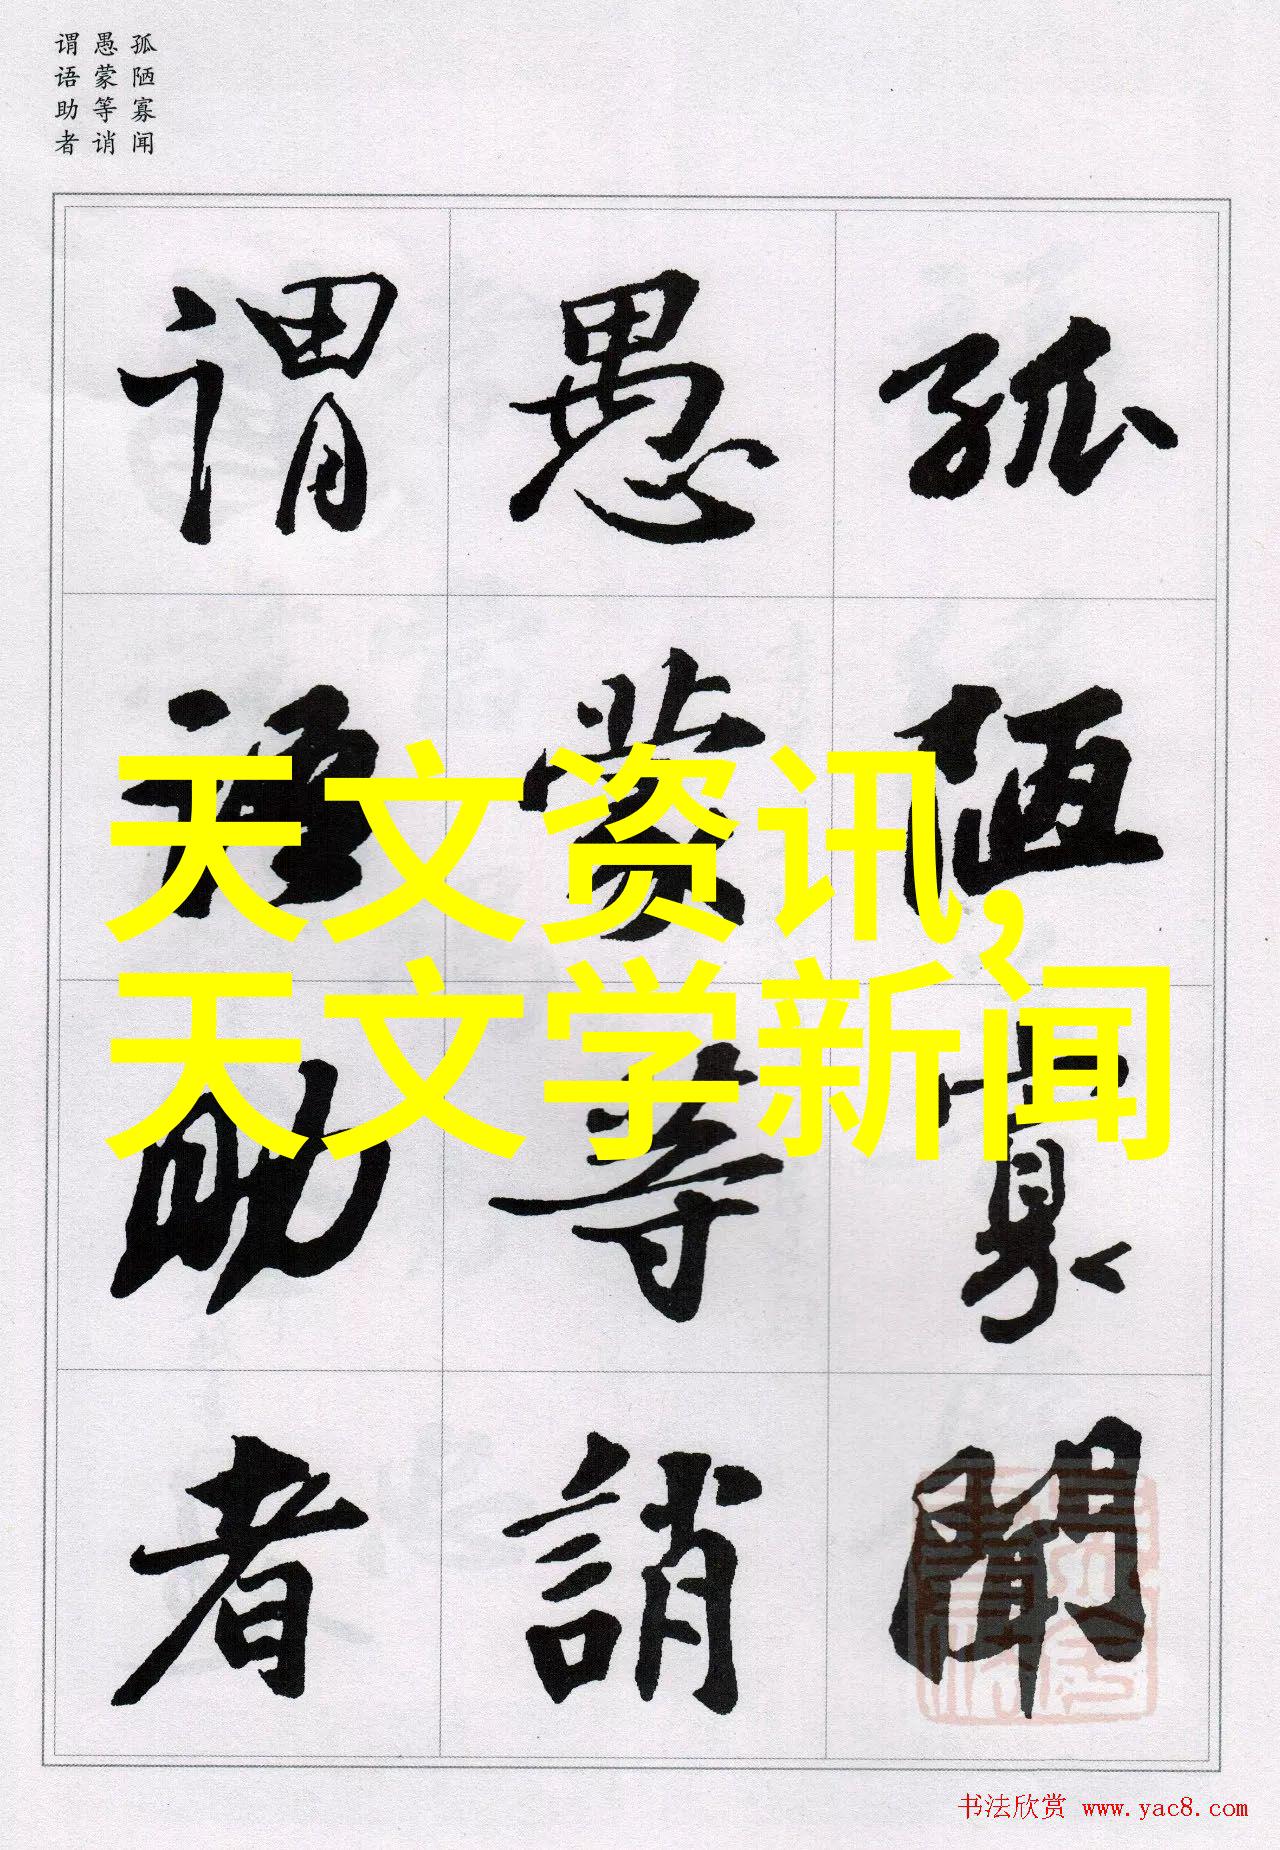 孤陋寡闻
愚蒙等诮
谓语助者
孤陋寡聞
愚蒙等誚
谓語助者
天文资讯,
天文学新闻
书法欣赏 www.yac8.com